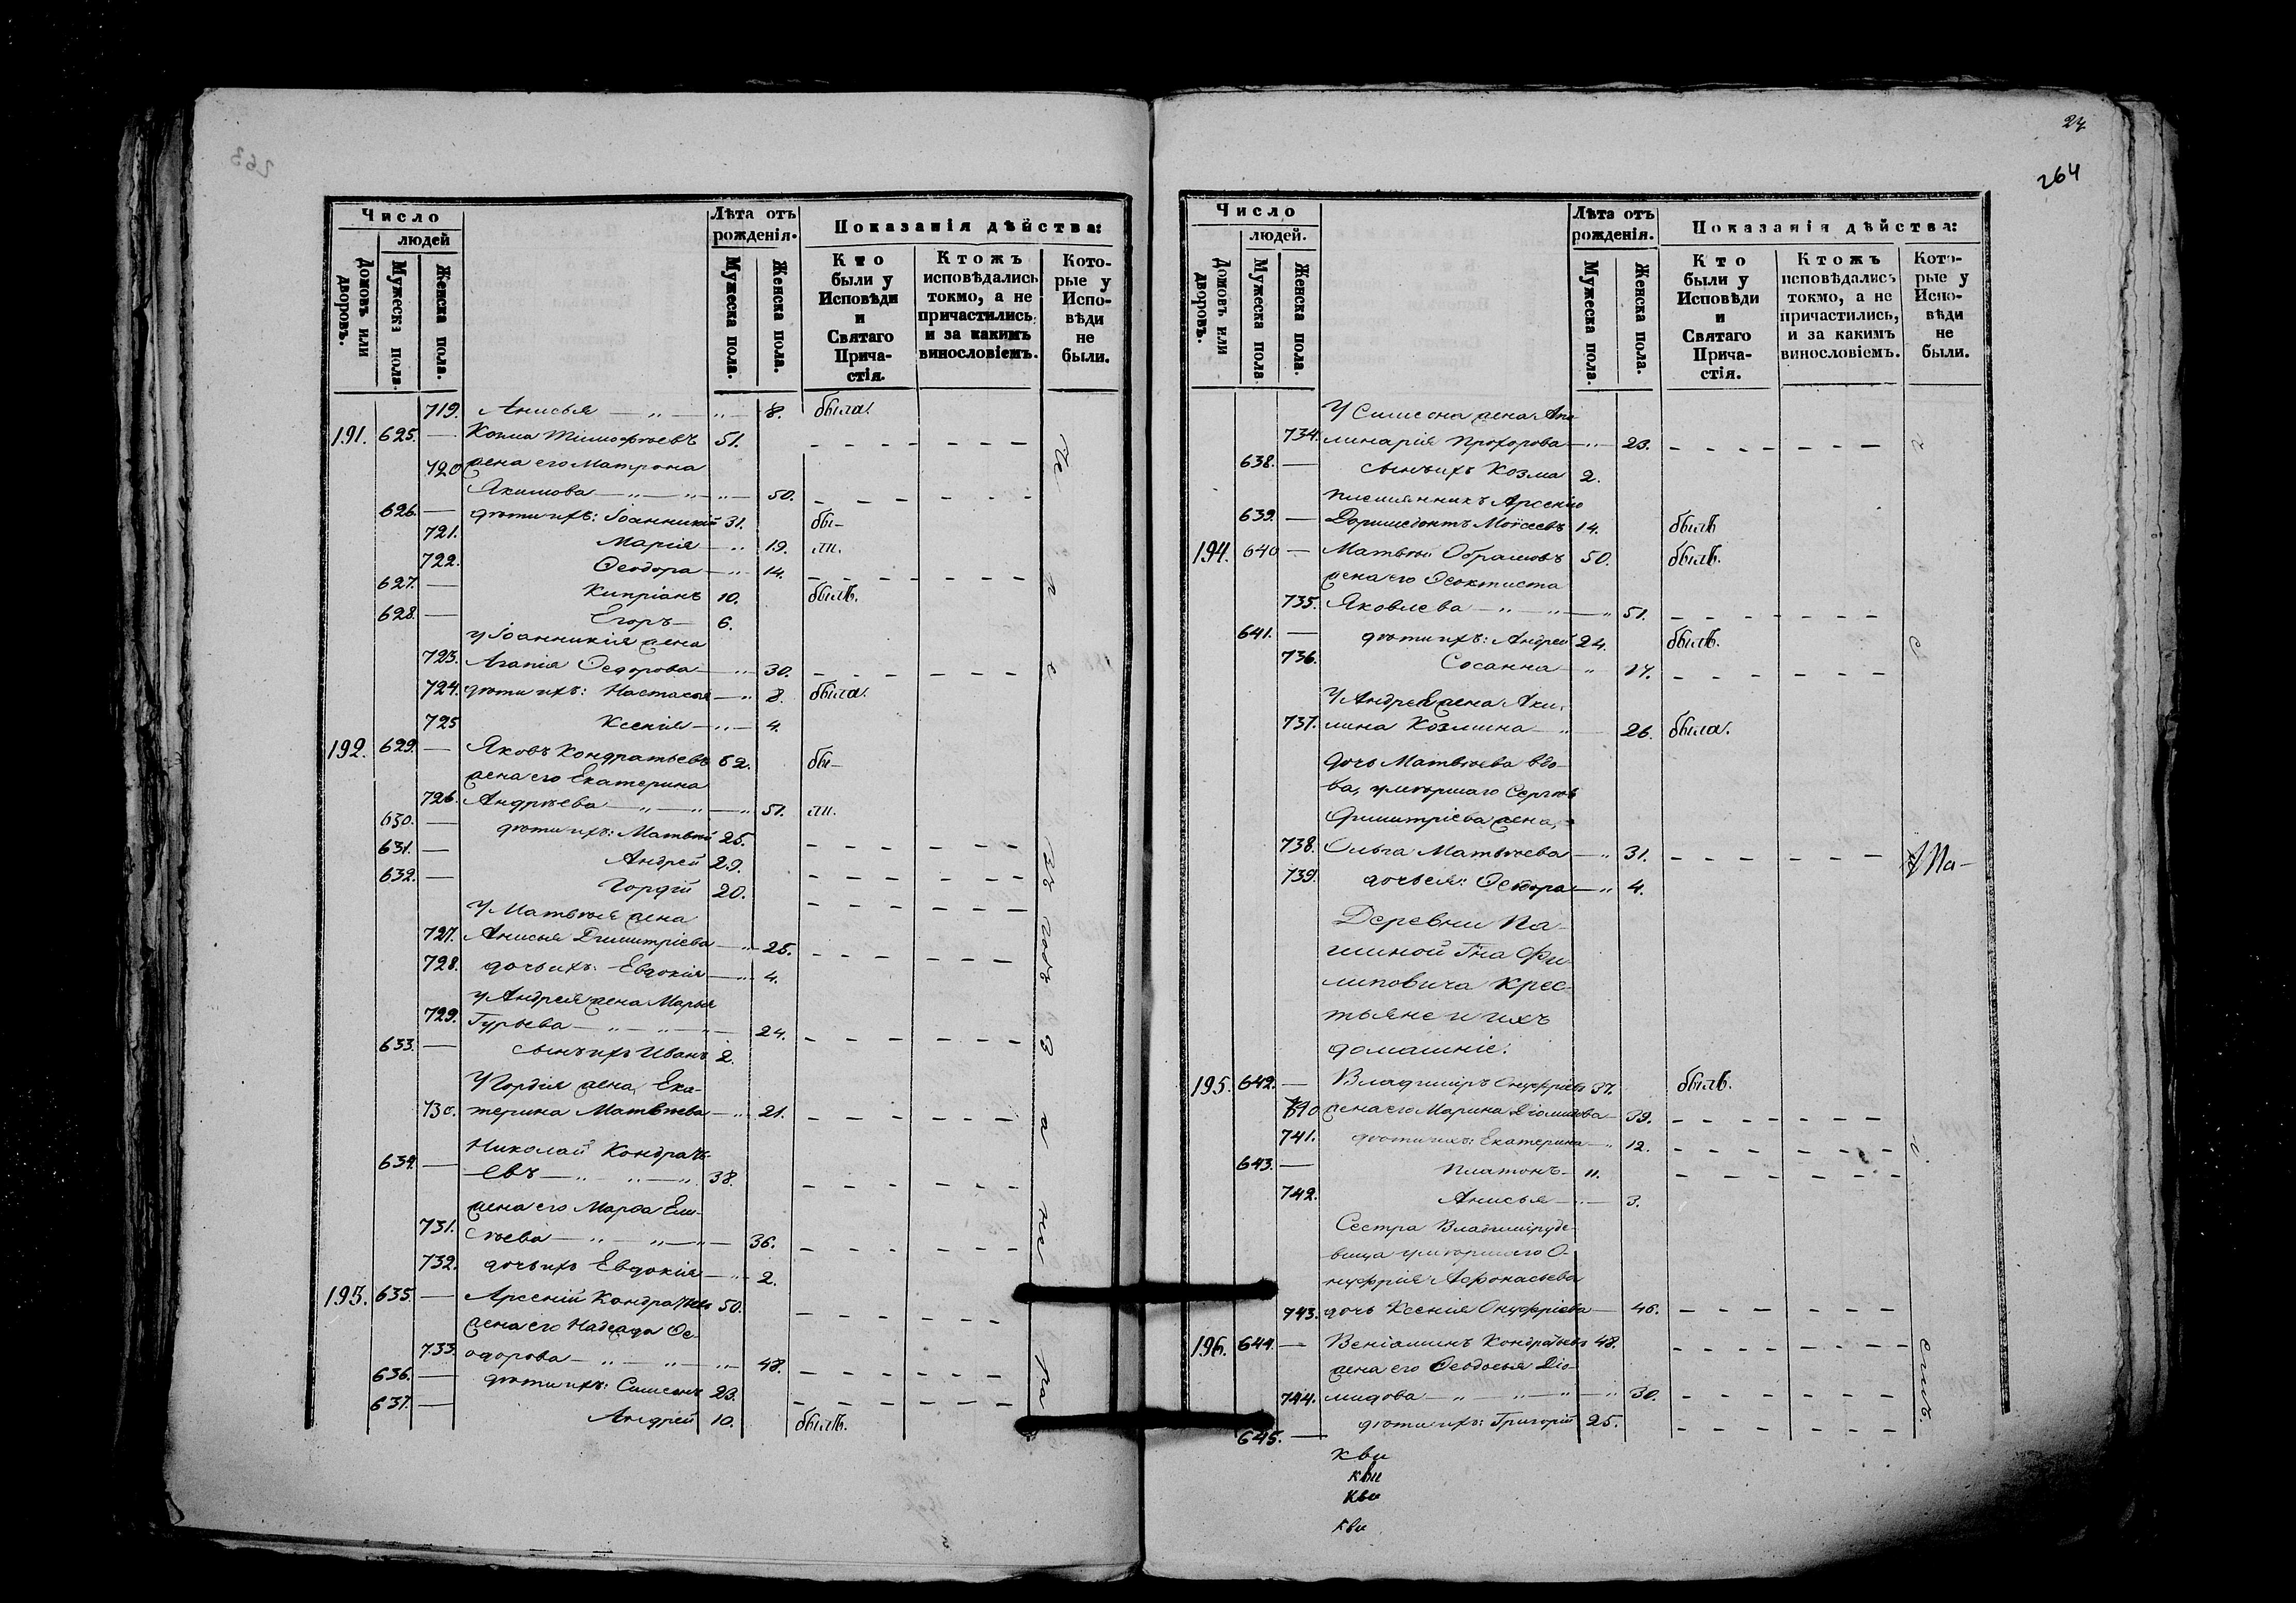 263
Число
людей
Домовъ или дворовъ.
Мужеска пола.
Женска пола.
Лѣта отъ рожденія.
Мужеска пола.
Женска пола.
Показанія дѣйства:
Кто были у Исповѣди и Святаго Причастія.
Ктожъ исповѣдались токмо, а не причастились, и за какимъ винословіемъ.
Которые у Исповѣди не были.
719. Анисья — „ — „ — 8. была.
191. 625. — Козма Тимофѣевъ 51.
720 жена его Матрона
Якимова — „ — „ — „ — 50.
626. — дѣти ихъ: Іоанникій 31. бы-
721. Марія — „ 19. ли.
722. Ѳеодора — „ — 14.
627. — Кипріанъ 10. былъ.
628. — Егоръ — 6.
у Іоанникія жена
723. Агапія Ѳедорова — „ — 30.
724. дѣти ихъ: Настасья — „ 8. была.
725 Ксенія — „ — 4.
192. 629. — Яковъ Кондратьевъ 62. бы-
жена его Екатерина
726. Андрѣева — „ — „ — „ 51. ли.
630. — дѣти ихъ: Матвѣй 25.
631. — Андрей 29.
632. — Гордій 20.
У Матвѣя жена
727. Анисья Димитріева — „ 25.
728. дочь ихъ: Евдокія — „ 4.
у Андрея жена Марья
729. Гурьева — „ — „ — „ — 24.
633. — сынъ ихъ Иванъ 2.
У Гордія жена Ека-
730. терина Матвѣева — „ 21.
634. — Николай Кондрать-
евъ — „ „ — „ 38.
жена его Марѳа Ели-
731. сѣева — „ — „ — „ — 36.
732. дочь ихъ Евдокія — „ 2.
193. 635. — Арсеній Кондратьевъ 50.
жена его Надежда Ѳе-
733. одорова — „ — „ — „ — 48.
636. — дѣти ихъ: Симеонъ 23.
637. — Андрей 10. былъ.
24
264
Число
людей.
Домовъ или дворовъ.
Мужеска пола.
Женска пола.
Лѣта отъ рожденія.
Мужеска пола.
Женска пола.
Показанія дѣйства:
Кто были у Исповѣди и Святаго Причастія.
Ктожъ исповѣдались токмо, а не причастились, и за какимъ винословіемъ.
Которые у Исповѣди не были.
У Симеона жена Апо-
734. линарія Прохорова — „ 23.
638. — сынъ ихъ Козма 2.
племянникъ Арсенію
639. — Доримедонтъ Моѵсеевъ 14. былъ
194. 640 — Матвѣй Обрамовъ 50. былъ.
жена его Ѳеоктиста
735. Яковлева — „ — „ — „ 51.
641. — дѣти ихъ: Андрей 24. былъ.
736. Сосанна — „ 17.
У Андрея жена Аки-
737. лина Козмина — „ — 26. была.
дочь Матвѣева вдо-
ва, умершаго Сергѣя
Димитріева жена,
738. Ольга Матвѣева — „ 31.
739. дочь ея: Ѳеодора — „ 4.
Деревни Па-
шиной Гна Фи-
липовича Крес-
тьяне и ихъ
домашніе.
195. 642. — Владиміръ Онуфріевъ 37. былъ.
740 жена его Марина Діомидова — 39.
741. дѣти ихъ: Екатерина — „ 12.
643. — Платонъ — 11.
742. Анисья — „ — 3.
Сестра Владиміру дѣ-
вица умершаго О-
нуфрія Аѳонасьева
743. дочь Ксенія Онуфріева — 46.
196. 644. — Веніаминъ Кондратьевъ 48.
жена его Ѳеодосья Діо-
744. мидова — „ — „ — „ — „ 30.
645. — дѣти ихъ: Григорій 25.
кви
кви
кви
кви